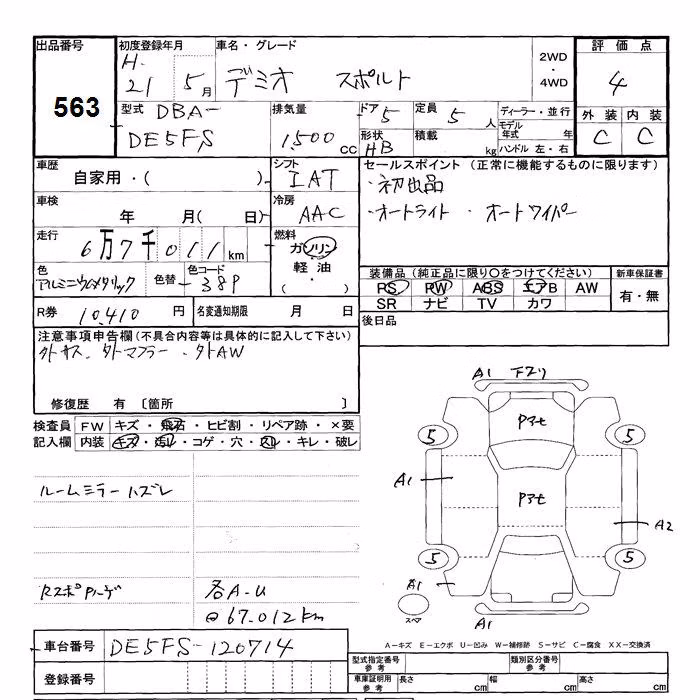 出品番号 初度登録年月 車名・グレード 2WD・4WD 評価点
563 H. 21 5月 デミオ スポルト 4
型式 DBA- DE5FS 排気量 1,500 cc ドア 5 定員 5人 ディーラー・並行 外装 内装
形状 HB 積載 kg モデル年式 年 ハンドル 左・右 C C
車歴 自家用・( ) シフト IAT セールスポイント (正常に機能するものに限ります)
・初出品
車検 年 月( 日) 冷房 AAC ・オートライト ・オートワイパー
走行 6万7千011km 燃料 ガソリン 軽油 ・( )
色 アルミニウムメタリック 色替 色コード 38P 装備品(純正品に限り〇をつけてください) 新車保証書
PS PW ABS エアB AW 有・無
SR ナビ TV カワ
R券 10,410円 名変通知期限 月 日 後日品
注意事項申告欄(不具合内容等は具体的に記入して下さい)
外サス、外マフラー、外AW
修復歴 有 〔箇所 〕
検査員 FW キズ・飛石・ヒビ割・リペア跡・×要
記入欄 内装 キズ・汚レ・コゲ・穴・スレ・キレ・破レ
ルームミラーハズレ
各A-U
67.012km
A1 下スリ
Pアセ
5 5
A1 Pアセ
A2
5 5
A1
スペア A1
車台番号 DE5FS-120714
登録番号
A-キズ E-エクボ U-凹み W-補修跡 S-サビ C-腐食 XX-交換済
型式指定番号 参考 類別区分番号 参考
車庫証明用 参考 長さ cm 幅 cm 高さ cm